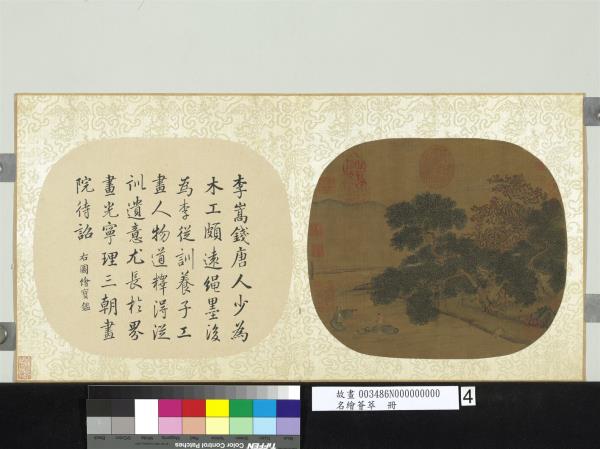 李嵩錢唐人少為
木工頗遠繩墨後
為李從訓養子工
畫人物道釋得從
訓遺意尤長於界
畫光寧理三朝畫
院待詔
右圖繪寶鑑
故畫 003486N000000000
名繪薈萃 冊
4
TIFFEN Color Control Patches